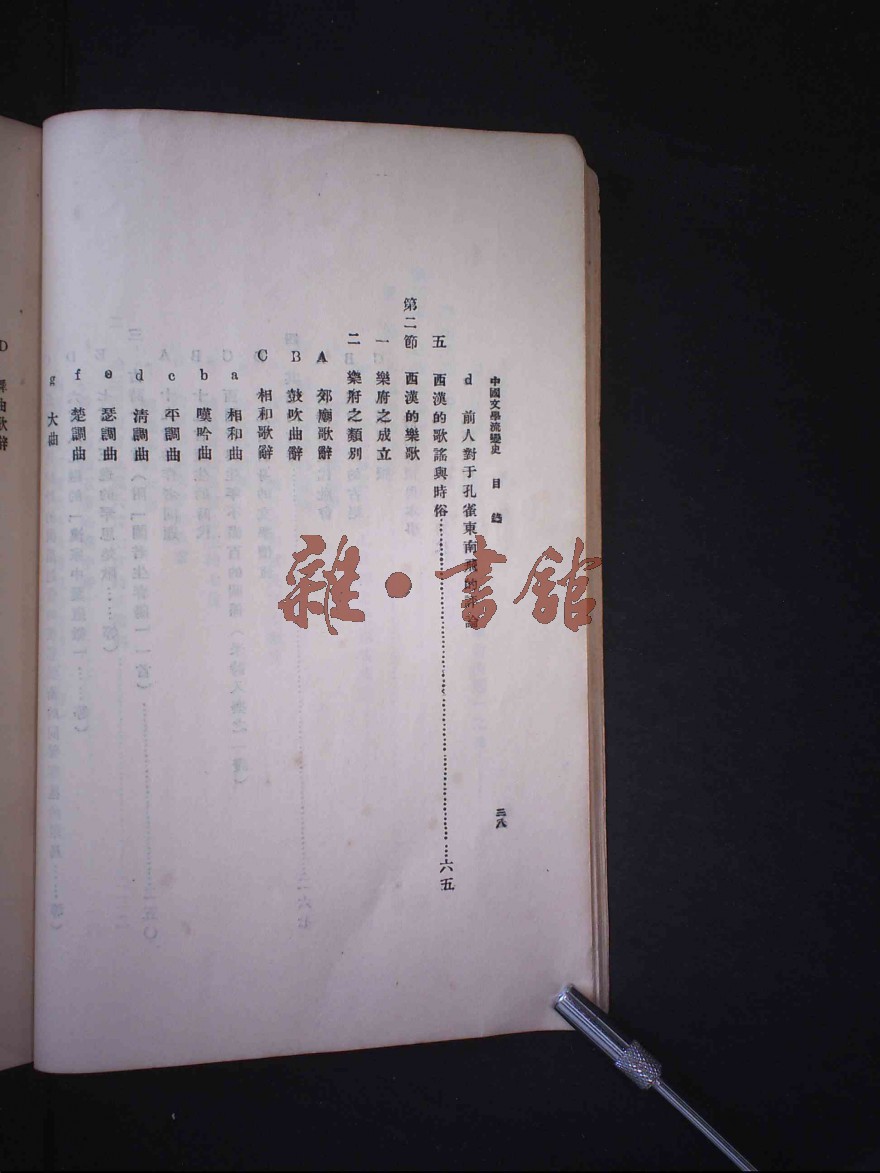 中國文學流變史 目錄 三八
d 前人對于孔雀東南飛的評論
五 西漢的歌謠與時俗……六五
第二節 西漢的樂歌
一 樂府之成立
二 樂府之類別
A 郊廟歌辭
B 鼓吹曲辭
C 相和歌辭
a 相和曲
b 嘆吟曲
c 平調曲
d 清調曲
e 瑟調曲
f 楚調曲
g 大曲
D 舞曲歌辭
雜·書館